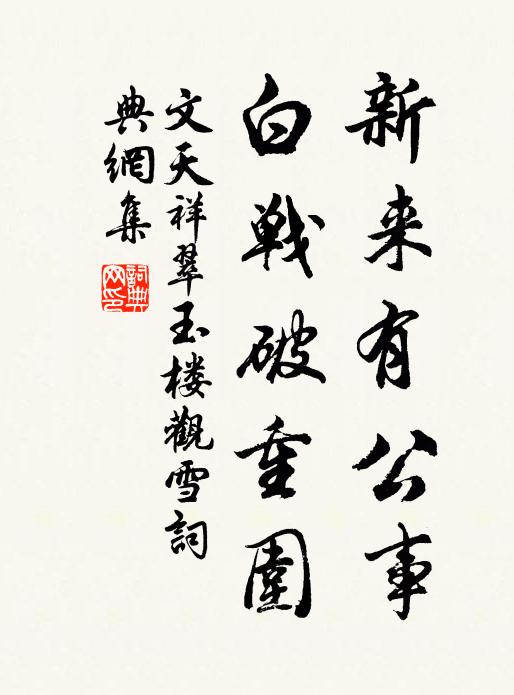 新来有公事
白戦破重圍
文天祥翠玉楼觀雪詞
典網集
詞典網印